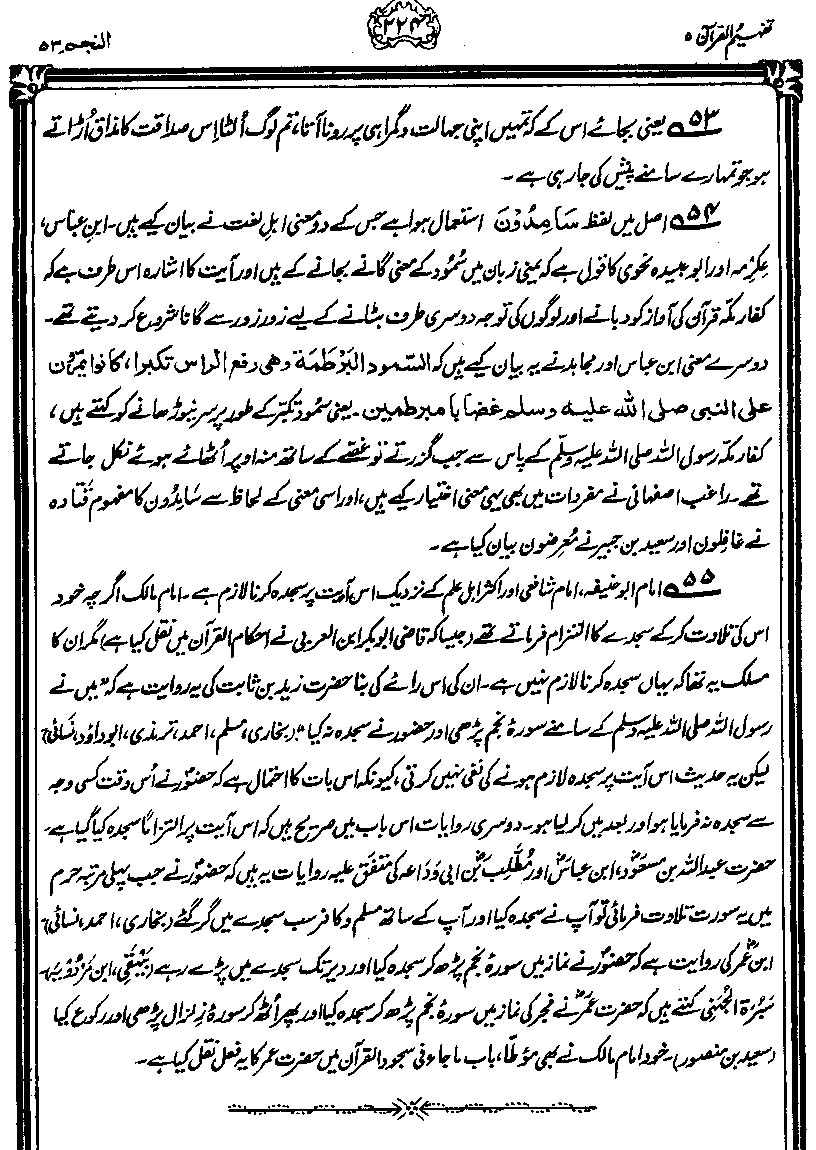 تفہیم القرآن ۵
۲۲۴
النجم ۵۳
۵۳؎ یعنی بجائے اس کے کہ تمہیں اپنی جہالت و گمراہی پر رونا آتا، تم لوگ اُلٹا اِس صداقت کا مذاق اُڑاتے
ہو جو تمہارے سامنے پیش کی جا رہی ہے۔
۵۴؎ اصل میں لفظ سَامِدُوْنَ استعمال ہوا ہے جس کے دو معنی اہلِ لغت نے بیان کیے ہیں۔ ابنِ عباس،
عِکرِمہ اور ابو عبیدہ نحوی کا قول ہے کہ یمنی زبان میں سُمُود کے معنی گانے بجانے کے ہیں اور آیت کا اشارہ اس طرف ہے کہ
کفارِ مکہ قرآن کی آواز کو دبانے اور لوگوں کی توجہ دوسری طرف ہٹانے کے لیے زور زور سے گانا شروع کر دیتے تھے۔
دوسرے معنی ابن عباس اور مجاہد نے یہ بیان کیے ہیں کہ السّمود البَرْطَمَۃ وھی رفع الراس تکبرا، کانوا یمرّون
علی النبی صلی اللہ علیہ وسلم غضابا مبرطمین۔ یعنی سمود تکبّر کے طور پر سر نیوڑھانے کو کہتے ہیں،
کفارِ مکہ رسول اللہ صلی اللہ علیہ وسلّم کے پاس سے جب گزرتے تو غصّے کے ساتھ منہ اوپر اُٹھائے ہوئے نکل جاتے
تھے۔ راغب اصفہانی نے مفردات میں بھی یہی معنی اختیار کیے ہیں، اور اسی معنی کے لحاظ سے سَامِدُون کا مفہوم قَتادہ
نے غافِلون اور سعید بن جبیر نے مُعرِضون بیان کیا ہے۔
۵۵؎ امام ابو حنیفہ، امام شافعی اور اکثر اہلِ علم کے نزدیک اس آیت پر سجدہ کرنا لازم ہے۔ امام مالک اگرچہ خود
اس کی تلاوت کر کے سجدے کا التزام فرماتے تھے (جیسا کہ قاضی ابوبکر ابن العربی نے احکام القرآن میں نقل کیا ہے) مگر ان کا
مسلک یہ تھا کہ یہاں سجدہ کرنا لازم نہیں ہے۔ ان کی اس رائے کی بنا حضرت زید بن ثابت کی یہ روایت ہے کہ "میں نے
رسول اللہ صلی اللہ علیہ وسلم کے سامنے سورۂ نجم پڑھی اور حضور نے سجدہ نہ کیا" (بخاری، مسلم، احمد، ترمذی، ابوداؤد، نسائی)
لیکن یہ حدیث اس آیت پر سجدہ لازم ہونے کی نفی نہیں کرتی، کیونکہ اس بات کا احتمال ہے کہ حضورؐ نے اُس وقت کسی وجہ
سے سجدہ نہ فرمایا ہو اور بعد میں کر لیا ہو۔ دوسری روایات اس باب میں صریح ہیں کہ اس آیت پر التزاماً سجدہ کیا گیا ہے۔
حضرت عبداللہ بن مسعودؓ، ابن عباسؓ اور مُطَّلِب بنؓ ابی وَدَاعہ کی متفق علیہ روایات یہ ہیں کہ حضورؐ نے جب پہلی مرتبہ حرم
میں یہ سورت تلاوت فرمائی تو آپ نے سجدہ کیا اور آپ کے ساتھ مسلم و کافر سب سجدے میں گر گئے (بخاری، احمد، نسائی)
ابن عمرؓ کی روایت ہے کہ حضورؐ نے نماز میں سورۂ نجم پڑھ کر سجدہ کیا اور دیر تک سجدے میں پڑے رہے (بَیْہَقِی، ابن مَرْدُوْیَہ)۔
سَبْرَۃ الجُہَنِی کہتے ہیں کہ حضرت عمرؓ نے فجر کی نماز میں سورۂ نجم پڑھ کر سجدہ کیا اور پھر اُٹھ کر سورۂ زِلزال پڑھی اور رکوع کیا
(سعید بن منصور)۔ خود امام مالک نے بھی مؤطّا، باب ماجاء فی سجود القرآن میں حضرت عمر کا یہ فعل نقل کیا ہے۔